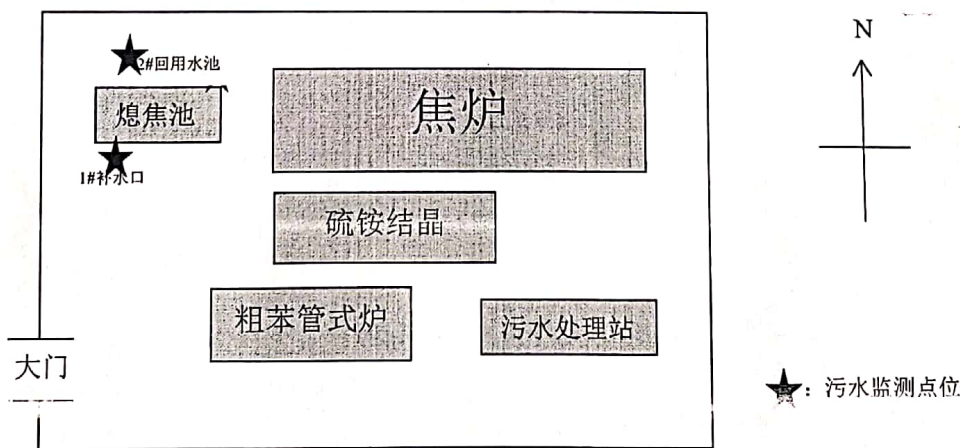 N
2#回用水池
熄焦池
焦炉
1#补水口
硫铵结晶
粗苯管式炉
污水处理站
大门
★：污水监测点位